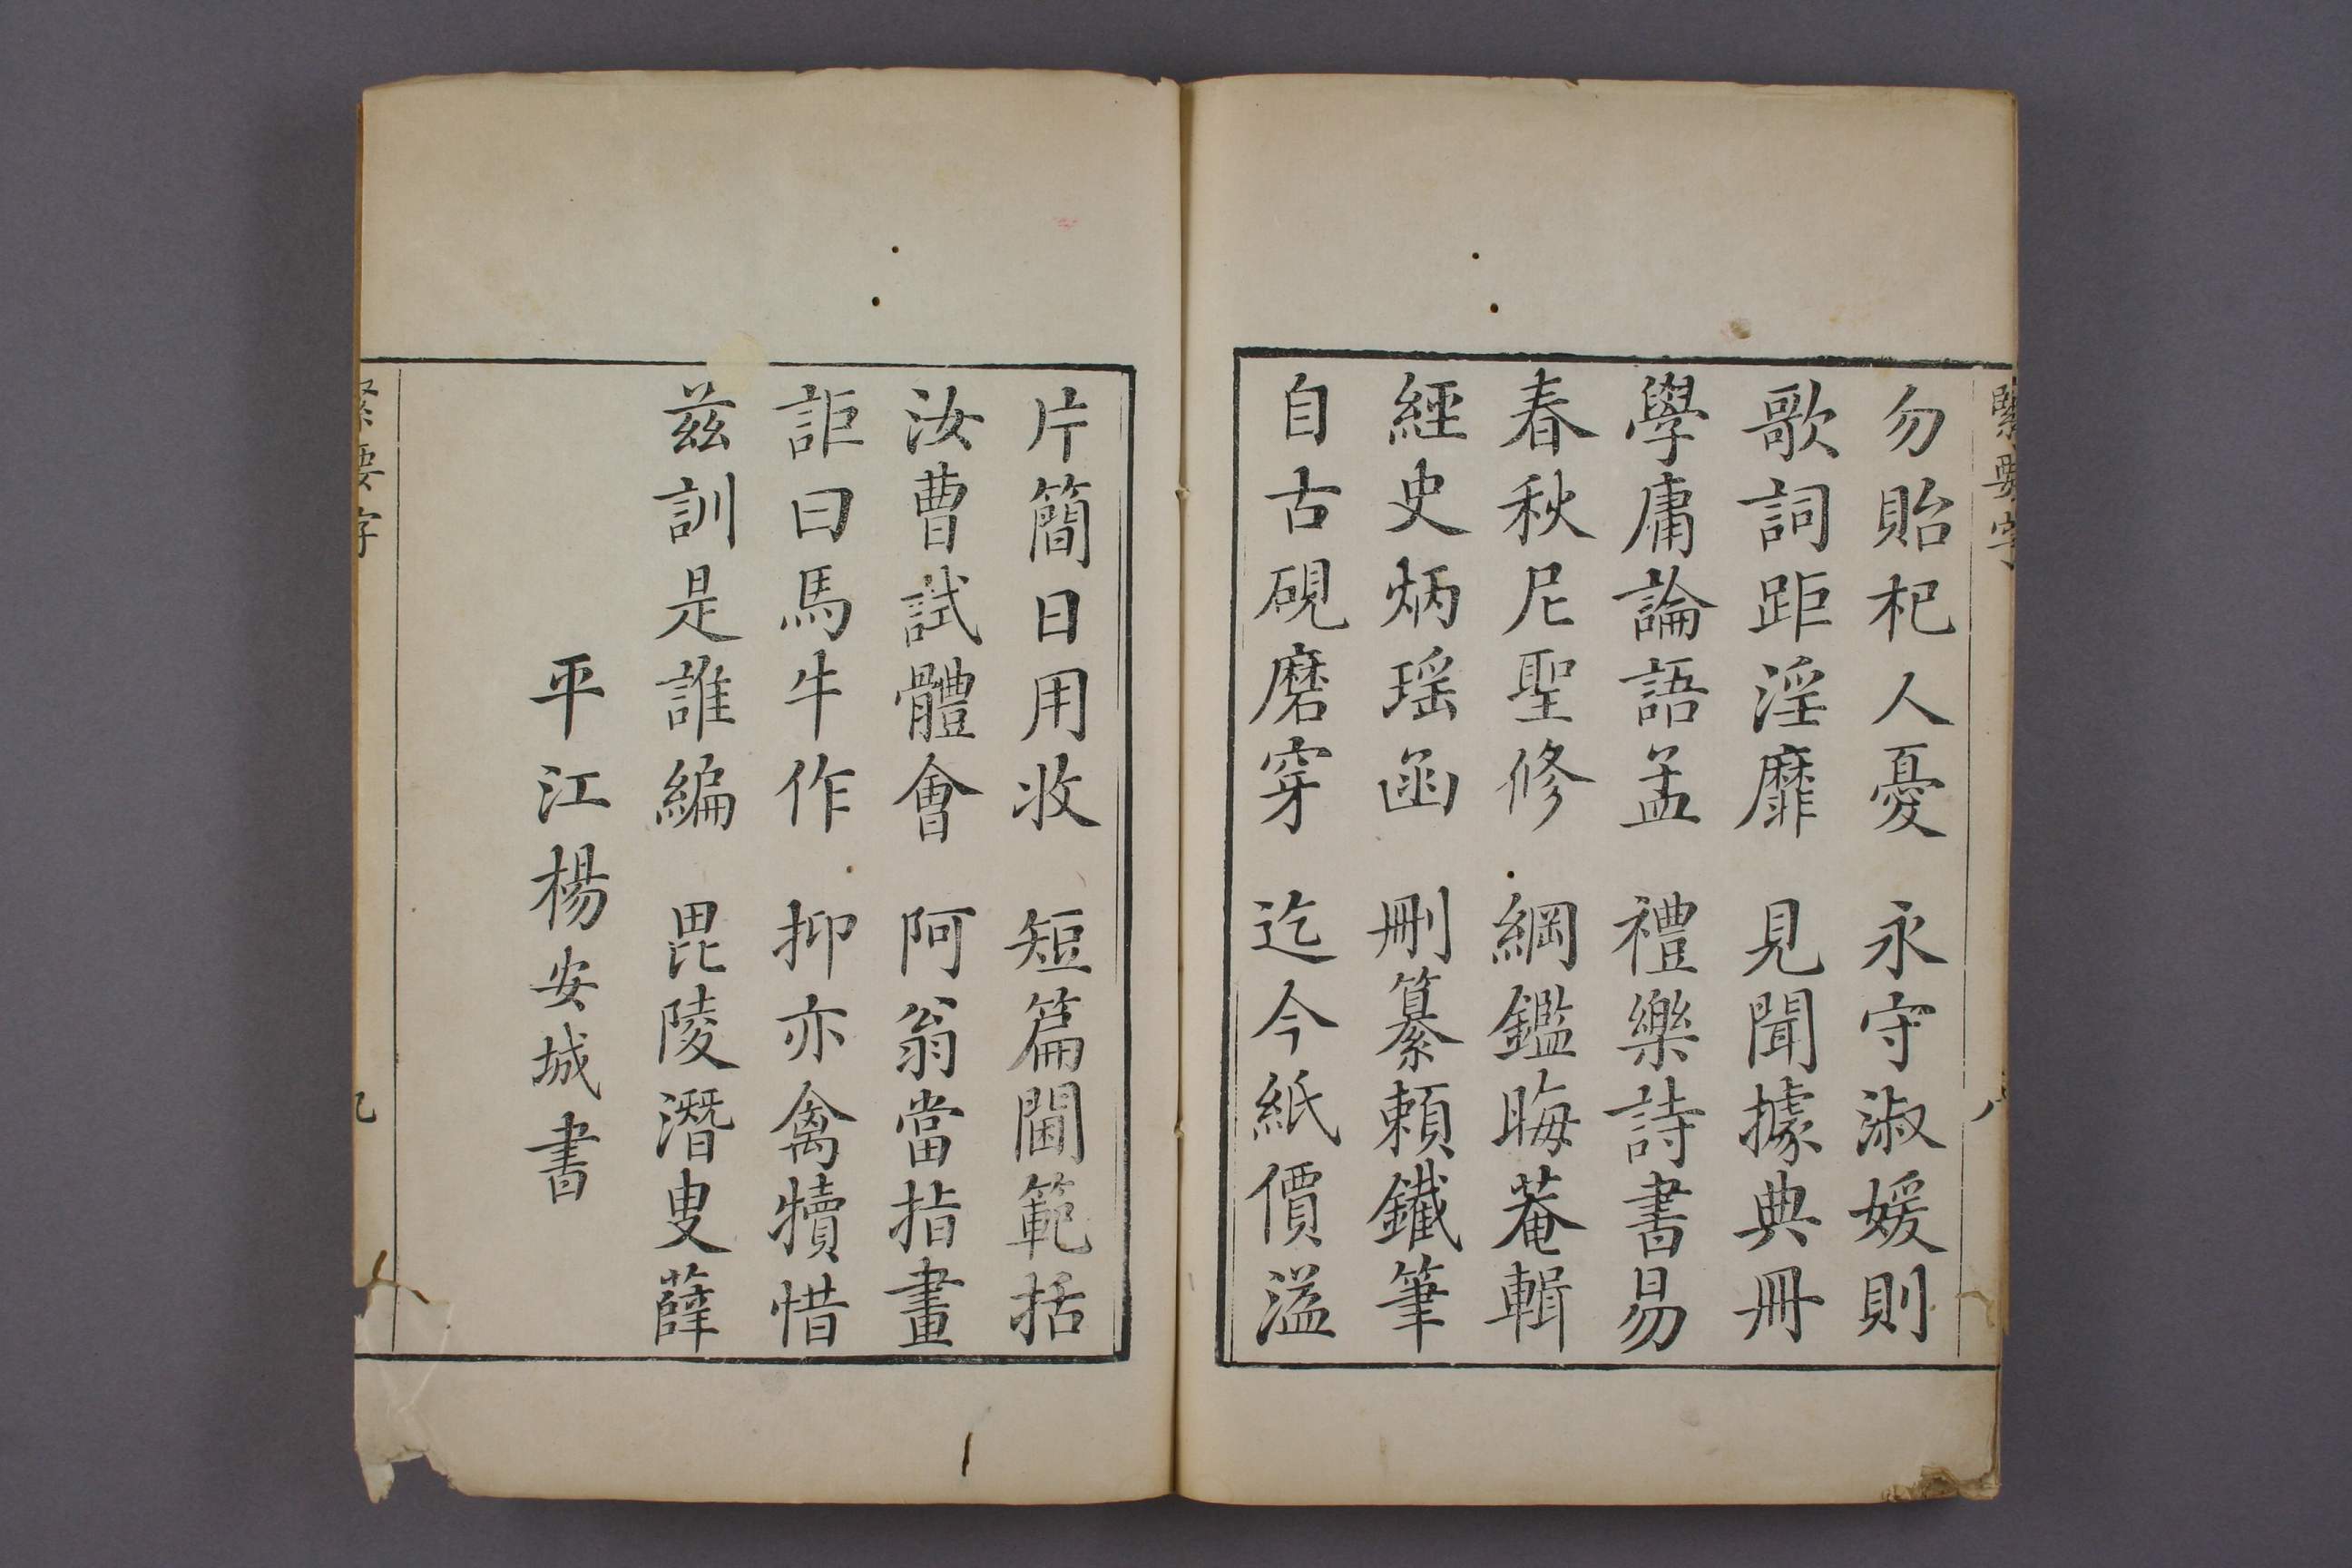 緊要字
八
勿貽杞人憂 永守淑媛則
歌詞距淫靡 見聞據典冊
學庸論語孟 禮樂詩書易
春秋尼聖修 綱鑑晦菴輯
經史炳瑶函 刪纂頼鐵筆
自古硯磨穿 迄今紙價溢
片簡日用收 短篇閫範括
汝曹試體會 阿翁當指畫
詎曰馬牛作 抑亦禽犢惜
兹訓是誰編 毘陵潛叟薛
平江楊安城書
緊要字